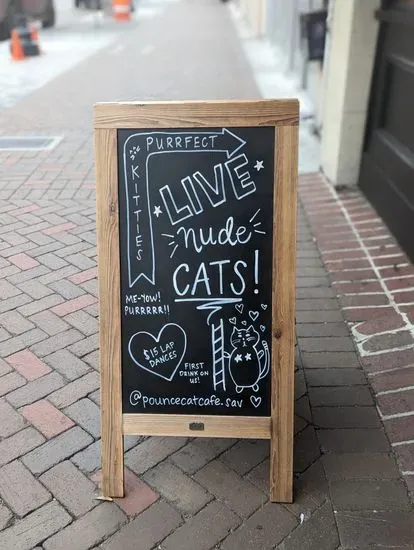 PURRFECT
KITTIES
LIVE
nude
CATS!
ME-YOW!
PURRRRR!!
$15 LAP
DANCES
FIRST
DRINK ON
US!
@pouncecatcafe.sav